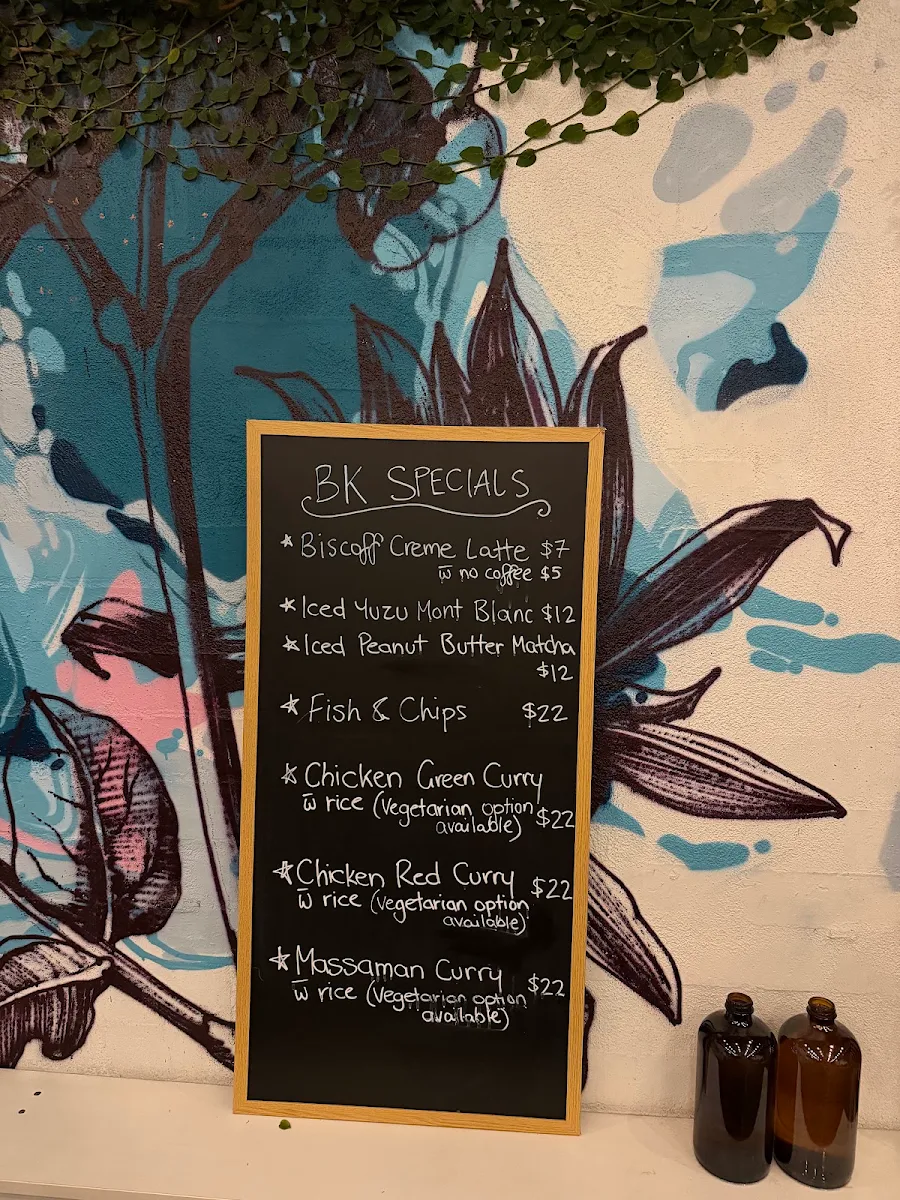 BK SPECIALS
* Biscoff Creme Latte $7
w̅ no coffee $5
* Iced Yuzu Mont Blanc $12
* Iced Peanut Butter Matcha
$12
* Fish & Chips $22
* Chicken Green Curry
w̅ rice (Vegetarian option $22
available)
* Chicken Red Curry $22
w̅ rice (Vegetarian option
available)
* Massaman Curry $22
w̅ rice (Vegetarian option
available)